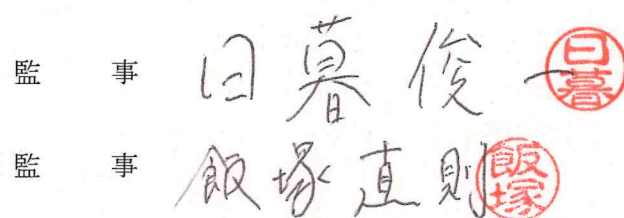 監事 日暮俊一 日暮
監事 飯塚直則 飯塚